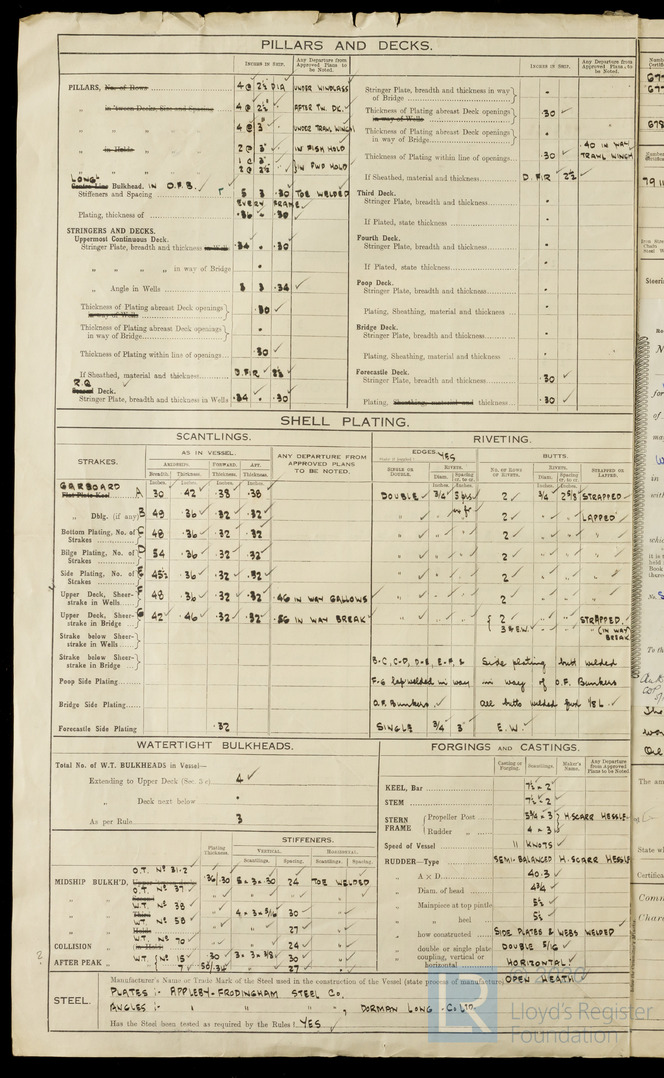 PILLARS AND DECKS.
INCHES IN SHIP.
Any Departure from Approved Plans to be Noted.
PILLARS, No. of Rows 4 @ 2½ DIA UNDER WINDLASS
„ in 'tween Decks, Size and Spacing 4 @ 2½" AFTER TW. DC.
„ „ 4 @ 3" UNDER TRAWL WINCH
„ in Holds 2 @ 3" IN FISH HOLD
IN FWD HOLD
LONG'L
Centre Line Bulkhead. IN O.F.B.
Stiffeners and Spacing 5 3 .30 TOE WELDED
EVERY FRAME
Plating, thickness of .36 .30
STRINGERS AND DECKS.
Uppermost Continuous Deck.
Stringer Plate, breadth and thickness in Wells .34 .30
„ „ „ „ in way of Bridge
„ Angle in Wells 3 3 .34
Thickness of Plating abreast Deck openings in way of Wells .30
Thickness of Plating abreast Deck openings in way of Bridge
Thickness of Plating within line of openings .30
If Sheathed, material and thickness D.FIR 2½
R.Q.
Second Deck.
Stringer Plate, breadth and thickness in Wells .34 .30
INCHES IN SHIP.
Any Departure from Approved Plans to be Noted.
Stringer Plate, breadth and thickness in way of Bridge
Thickness of Plating abreast Deck openings in way of Wells .30
Thickness of Plating abreast Deck openings in way of Bridge
Thickness of Plating within line of openings .30 .40 IN WAY TRAWL WINCH
If Sheathed, material and thickness D. FIR 2½
Third Deck.
Stringer Plate, breadth and thickness
If Plated, state thickness
Fourth Deck.
Stringer Plate, breadth and thickness
If Plated, state thickness
Poop Deck.
Stringer Plate, breadth and thickness
Plating, Sheathing, material and thickness
Bridge Deck.
Stringer Plate, breadth and thickness
Plating, Sheathing, material and thickness
Forecastle Deck.
Stringer Plate, breadth and thickness .30
Plating, Sheathing, material and thickness .30
SHELL PLATING.
SCANTLINGS.
RIVETING.
STRAKES.
AS IN VESSEL.
AMIDSHIPS. FORWARD. AFT.
Breadth. Thickness. Thickness. Thickness.
Inches. Inches. Inches. Inches.
ANY DEPARTURE FROM APPROVED PLANS TO BE NOTED.
EDGES. YES
SINGLE OR DOUBLE.
RIVETS.
Diam. Spacing cr. to cr.
BUTTS.
No. OF ROWS OF RIVETS.
RIVETS.
Diam. Spacing cr. to cr.
STRAPPED OR LAPPED.
GARBOARD
Flat Plate Keel A 30 .42 .38 .38 DOUBLE 3/4 2 3/4 2 5/8 STRAPPED
„ Dblg. (if any) B 48 .36 .32 .32 2 LAPPED
Bottom Plating, No. of Strakes C 48 .36 .32 .32 2
Bilge Plating, No. of Strakes D 54 .36 .32 .32 2
Side Plating, No. of Strakes E 45½ .36 .32 .32 2
Upper Deck, Sheerstrake in Wells F 48 .36 .32 .32 .46 IN WAY GALLOWS 2
Upper Deck, Sheerstrake in Bridge G 42 .46 .32 .32 .56 IN WAY BREAK 2 STRAPPED.
3 & E.W. (IN WAY BREAK
Strake below Sheerstrake in Wells
Strake below Sheerstrake in Bridge B-C, C-D, D-E, E-F, & Side plating butt welded
Poop Side Plating F-G lap welded in way in way of O.F. Bunkers
Bridge Side Plating O.F. Bunkers. All butts welded
Forecastle Side Plating .32 SINGLE 3/4 3" E.W.
WATERTIGHT BULKHEADS.
Total No. of W.T. BULKHEADS in Vessel—
Extending to Upper Deck (Sec. 3 c) 4
„ Deck next below
As per Rule 3
Plating Thickness.
STIFFENERS.
VERTICAL. HORIZONTAL.
Scantlings. Spacing. Scantlings. Spacing.
MIDSHIP BULKH'D, O.T. Nº 31.2 .36/.30 5 x 3 x .30 24 TOE WELDED
O.T. Nº 37
W.T. Nº 38 4 x 3 x 5/16 30
W.T. Nº 58 27
COLLISION W.T. Nº 70 24
AFTER PEAK W.T. Nº 15 .30 30
7 27
FORGINGS AND CASTINGS.
Casting or Forging. Scantlings. Maker's Name. Any Departure from Approved Plans to be Noted
KEEL, Bar 7½ x 2
STEM 7½ x 2
STERN FRAME Propeller Post 5¾ x 3 H. SCARR HESSLE.
Rudder „ 4 x 3
Speed of Vessel 11 KNOTS
RUDDER—Type SEMI-BALANCED H. SCARR HESSLE
„ A × D 40.3
„ Diam. of head 4¾
„ Mainpiece at top pintle 5½
„ „ heel 5½
„ how constructed SIDE PLATES & WEBS WELDED
„ double or single plate DOUBLE 5/16
„ coupling, vertical or horizontal HORIZONTAL
STEEL.
Manufacturer's Name or Trade Mark of the Steel used in the construction of the Vessel (state process of manufacture) OPEN HEATH
PLATES :- APPLEBY-FRODINGHAM STEEL Co.
ANGLES :- „ „ , DORMAN LONG & Co LTD.
Has the Steel been tested as required by the Rules? YES
© 2020
LR
Lloyd's Register
Foundation